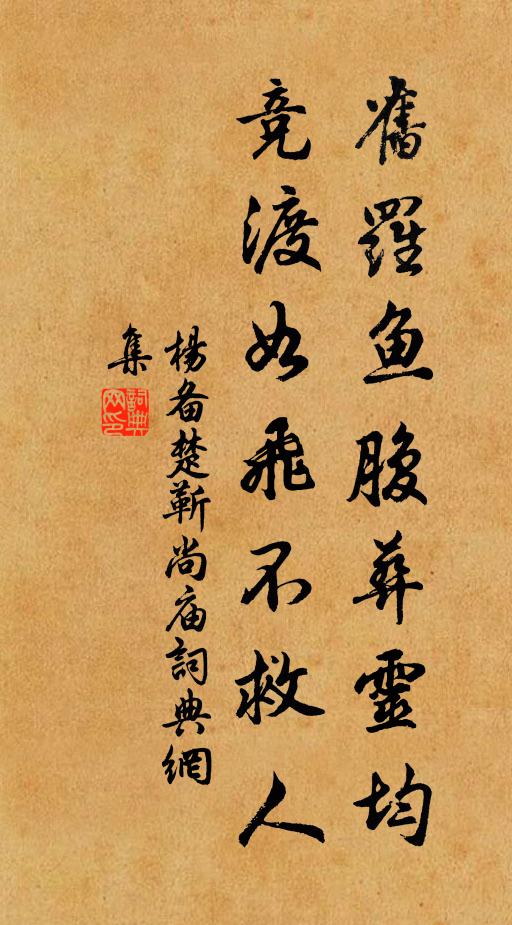 舊羅魚腹葬靈均
竞渡如飛不救人
楊备楚靳尚庙詞典網
集
詞典网印